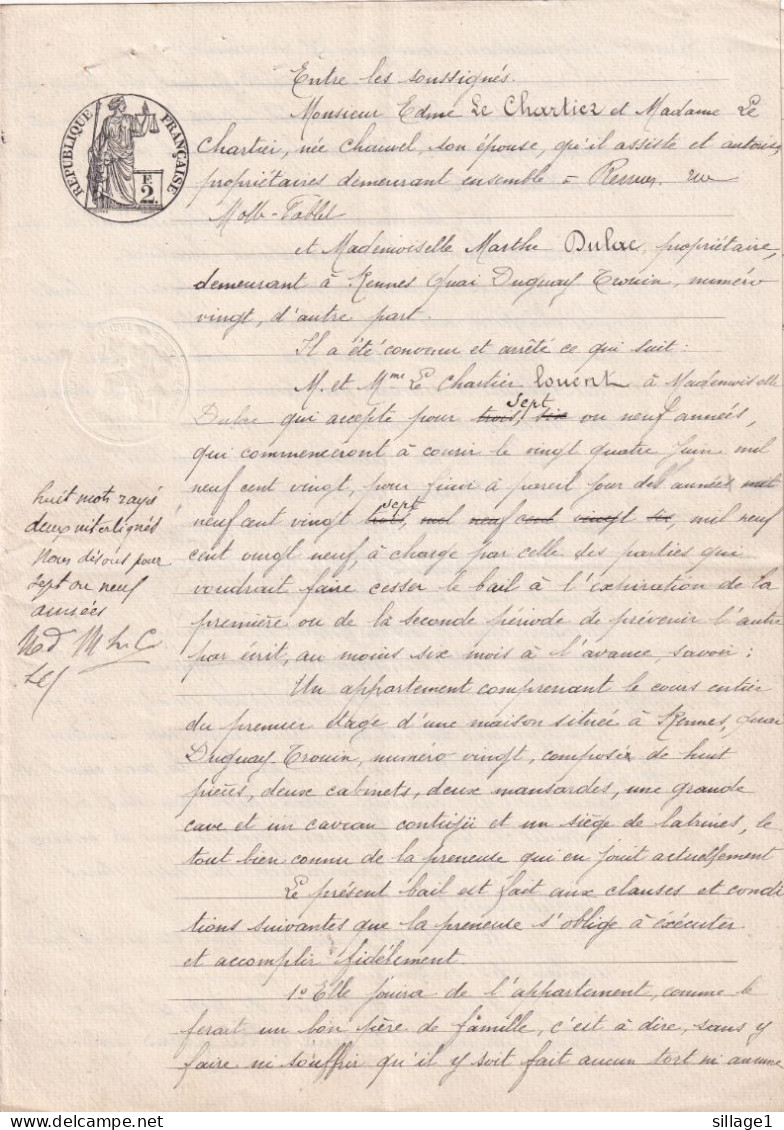 Entre les soussignés.
Monsieur Edme Le Chartier et Madame Le
Chartier, née Chauvel, son épouse, qu'il assiste et autorise,
propriétaires demeurant ensemble à Rennes, rue
RÉPUBLIQUE FRANÇAISE
2 F.
et Mademoiselle Marthe Dulac, propriétaire,
demeurant à Rennes Quai Duguay Trouin, numéro
vingt, d'autre part.
Il a été convenu et arrêté ce qui suit :
M. et Mme Le Chartier louent à Mademoiselle
Dulac qui accepte pour trois, sept six ou neuf années,
qui commenceront à courir le vingt quatre Juin mil
neuf cent vingt, pour finir à pareil jour des années mil
neuf cent vingt trois, sept mil neuf cent vingt six, mil neuf
cent vingt neuf, à charge par celle des parties qui
voudrait faire cesser le bail à l'expiration de la
première ou de la seconde période de prévenir l'autre
par écrit, au moins six mois à l'avance, savoir :
huit mots rayés
deux interlignés
Nous disons pour
sept ou neuf
années
Md
Un appartement comprenant le cours entier
du premier étage d'une maison située à Rennes, Quai
Duguay Trouin, numéro vingt, composée de huit
pièces, deux cabinets, deux mansardes, une grande
cave et un caveau contigu et un siège de latrines, le
tout bien connu de la preneuse qui en jouit actuellement
Le présent bail est fait aux clauses et condi
tions suivantes que la preneuse s'oblige à exécuter
et accomplir fidèlement.
1º Elle jouira de l'appartement, comme le
ferait un bon père de famille, c'est à dire, sans y
faire ni souffrir qu'il y soit fait aucun tort ni aucune
sillage1